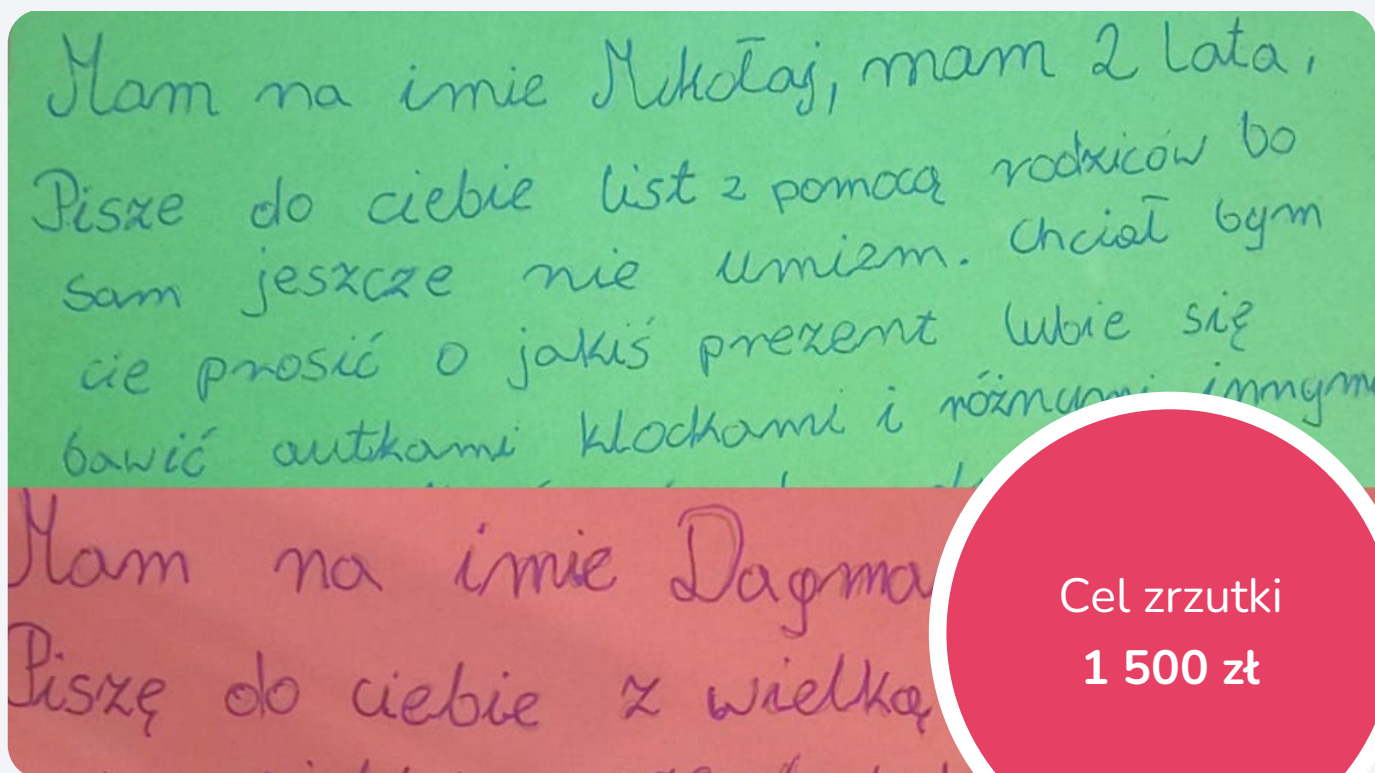 Mam na imie Mikołaj, mam 2 lata,
Pisze do ciebie list z pomocą rodziców bo
sam jeszcze nie umiem. Chciał bym
cie prosić o jakiś prezent lubie się
bawić autkami klockami i różnymi innymi
Mam na imie Dagma
Piszę do ciebie z wielką
Cel zrzutki
1 500 zł